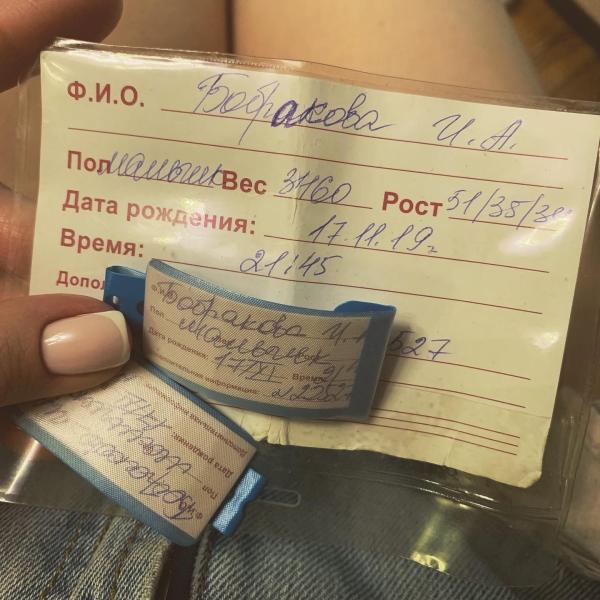 Ф.И.О. Бобракова И. А.
Пол мальчик Вес 3460 Рост 51/35/34
Дата рождения: 17.11.19г
Время: 21:45
Допол
527
Бобракова И. А
Пол мальчик
Дата рождения: 17/XI Время:
Дополнительная информация:
Бобракова
Пол
Дата рождения:
Дополнительная информация: